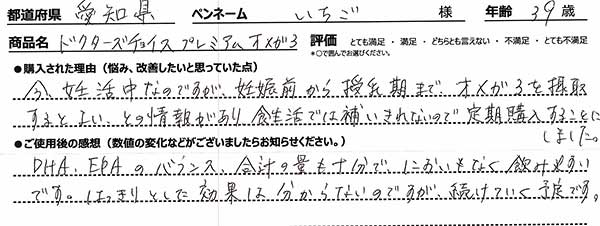 都道府県 愛知県 ペンネーム いちご 様 年齢 39 歳
商品名 ドクターズチョイス プレミアムオメガ3 評価 とても満足 ・ 満足 ・ どちらとも言えない ・ 不満足 ・ とても不満足
*○で囲んでお選びください。
●購入された理由(悩み、改善したいと思っていた点)
今、妊活中なのですが、妊娠前から授乳期まで、オメガ3を摂取
するとよい、との情報があり、食生活では補いきれないので定期購入することに
しました。
●ご使用後の感想(数値の変化などがございましたらお知らせください。)
DHA、EPAのバランス、合計の量も十分で、においもなく飲みやすい
です。はっきりとした効果は分からないのですが、続けていく予定です。